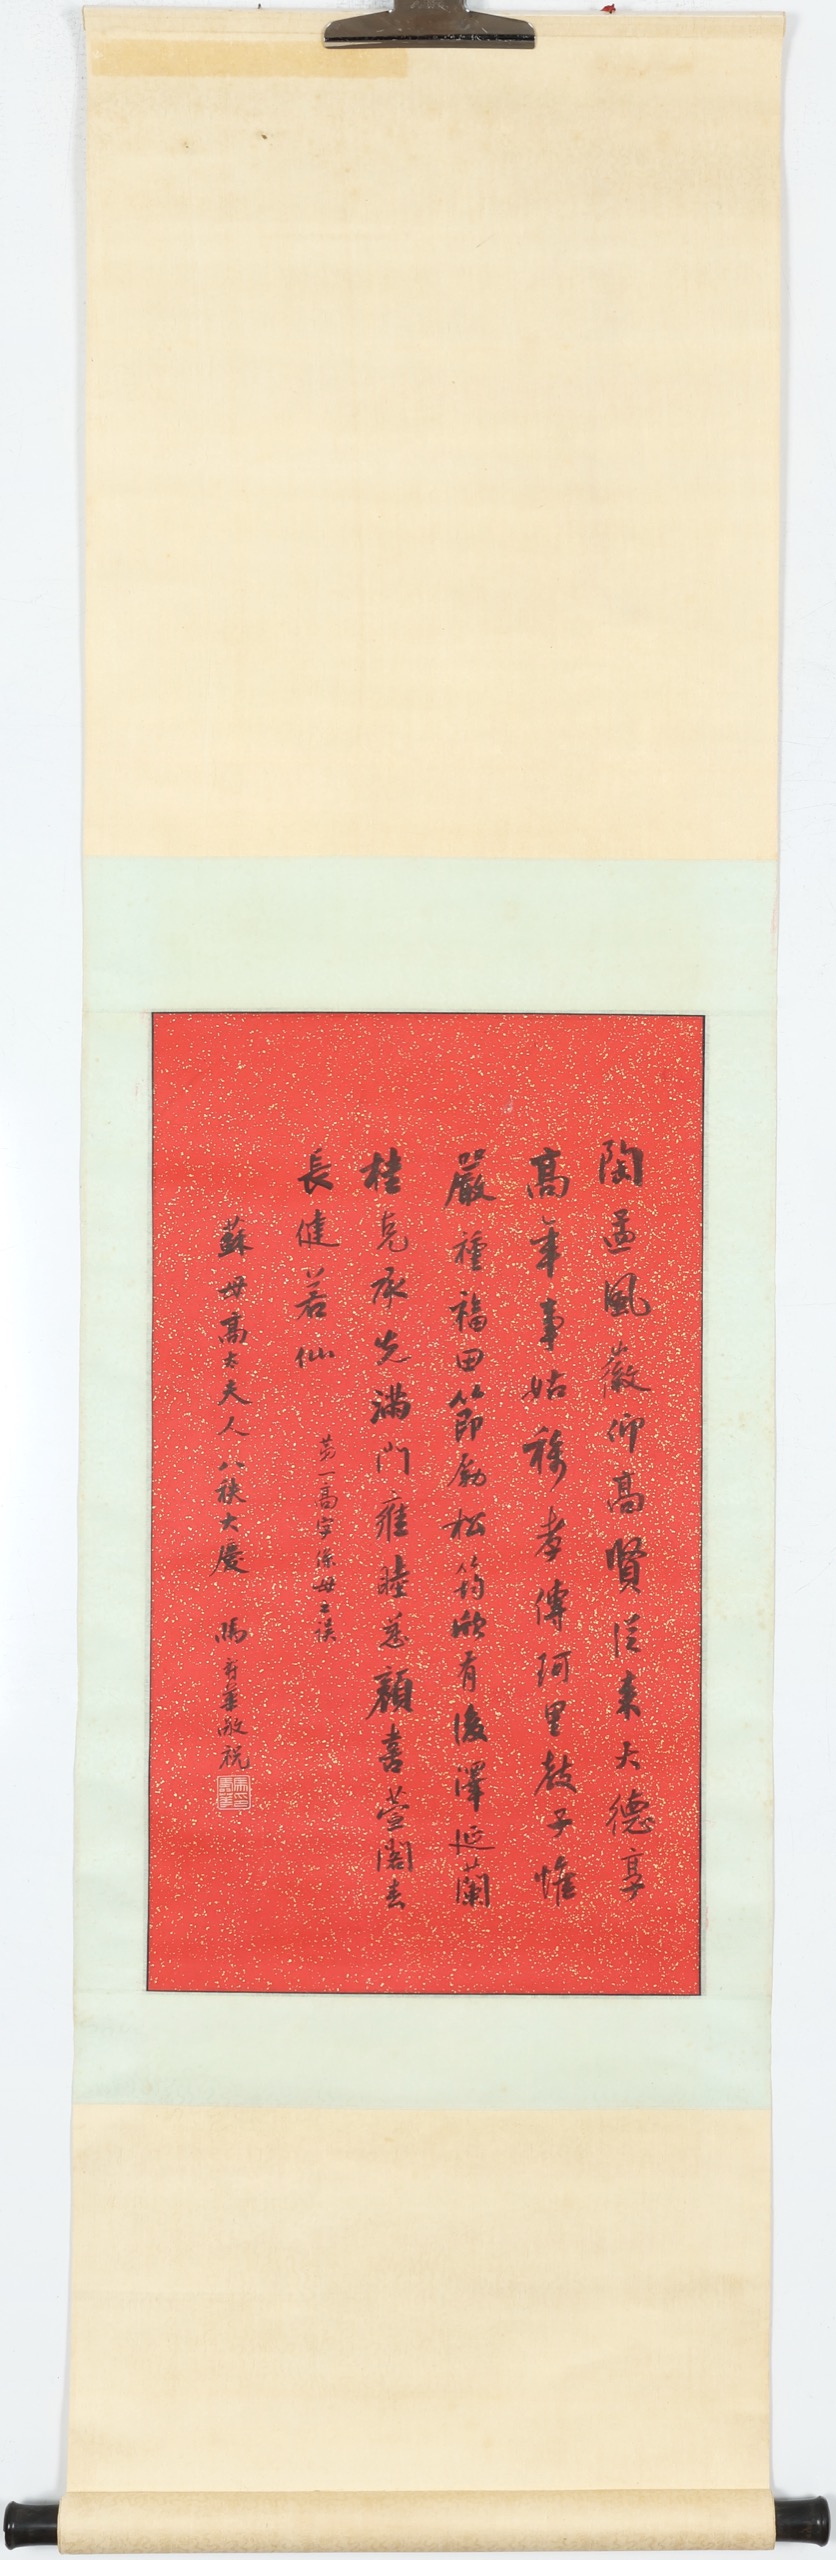 陶孟風徽仰高賢從來大德享
高年事姑移孝傳阿里教子惟
嚴種福田節勵松筠欣有後澤延蘭
桂克承先滿門雍睦慈顏喜萱閣春
長健若仙
第一高字係母之誤
蘇母高太夫人八秩大慶 馮壽華敬祝